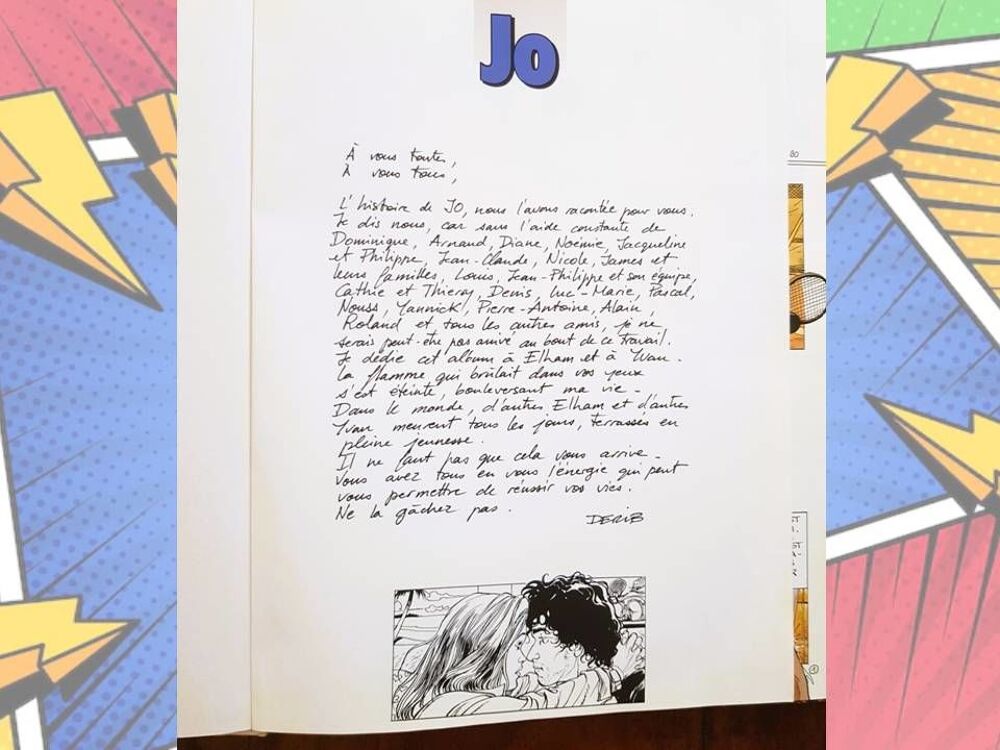 Jo
À vous toutes,
À vous tous,
L'histoire de JO, nous l'avons racontée pour vous.
Je dis nous, car sans l'aide constante de
Dominique, Arnaud, Diane, Noémie, Jacqueline
et Philippe, Jean-Claude, Nicole, James et
leurs familles, Louis, Jean-Philippe et son équipe,
Cathie et Thierry, Denis, Luc-Marie, Pascal,
Nouss, Yannick, Pierre-Antoine, Alain,
Roland et tous les autres amis, je ne
serais peut-être pas arrivé au bout de ce travail.
Je dédie cet album à Elham et à Yvan.
La flamme qui brûlait dans vos yeux
s'est éteinte, bouleversant ma vie.
Dans le monde, d'autres Elham et d'autres
Yvan meurent tous les jours, terrassés en
pleine jeunesse.
Il ne faut pas que cela vous arrive.
Vous avez tous en vous l'énergie qui peut
vous permettre de réussir vos vies.
Ne la gâchez pas.
DERIB
80